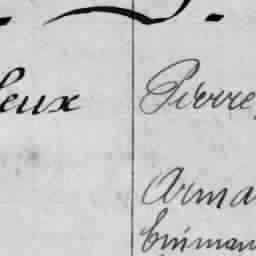 leux Pierre,
Arma
Emman